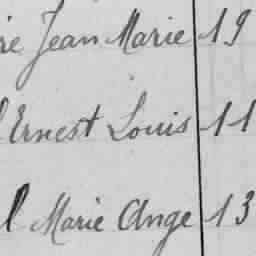 re Jean Marie 19
l Ernest Louis 11
l Marie Ange 13